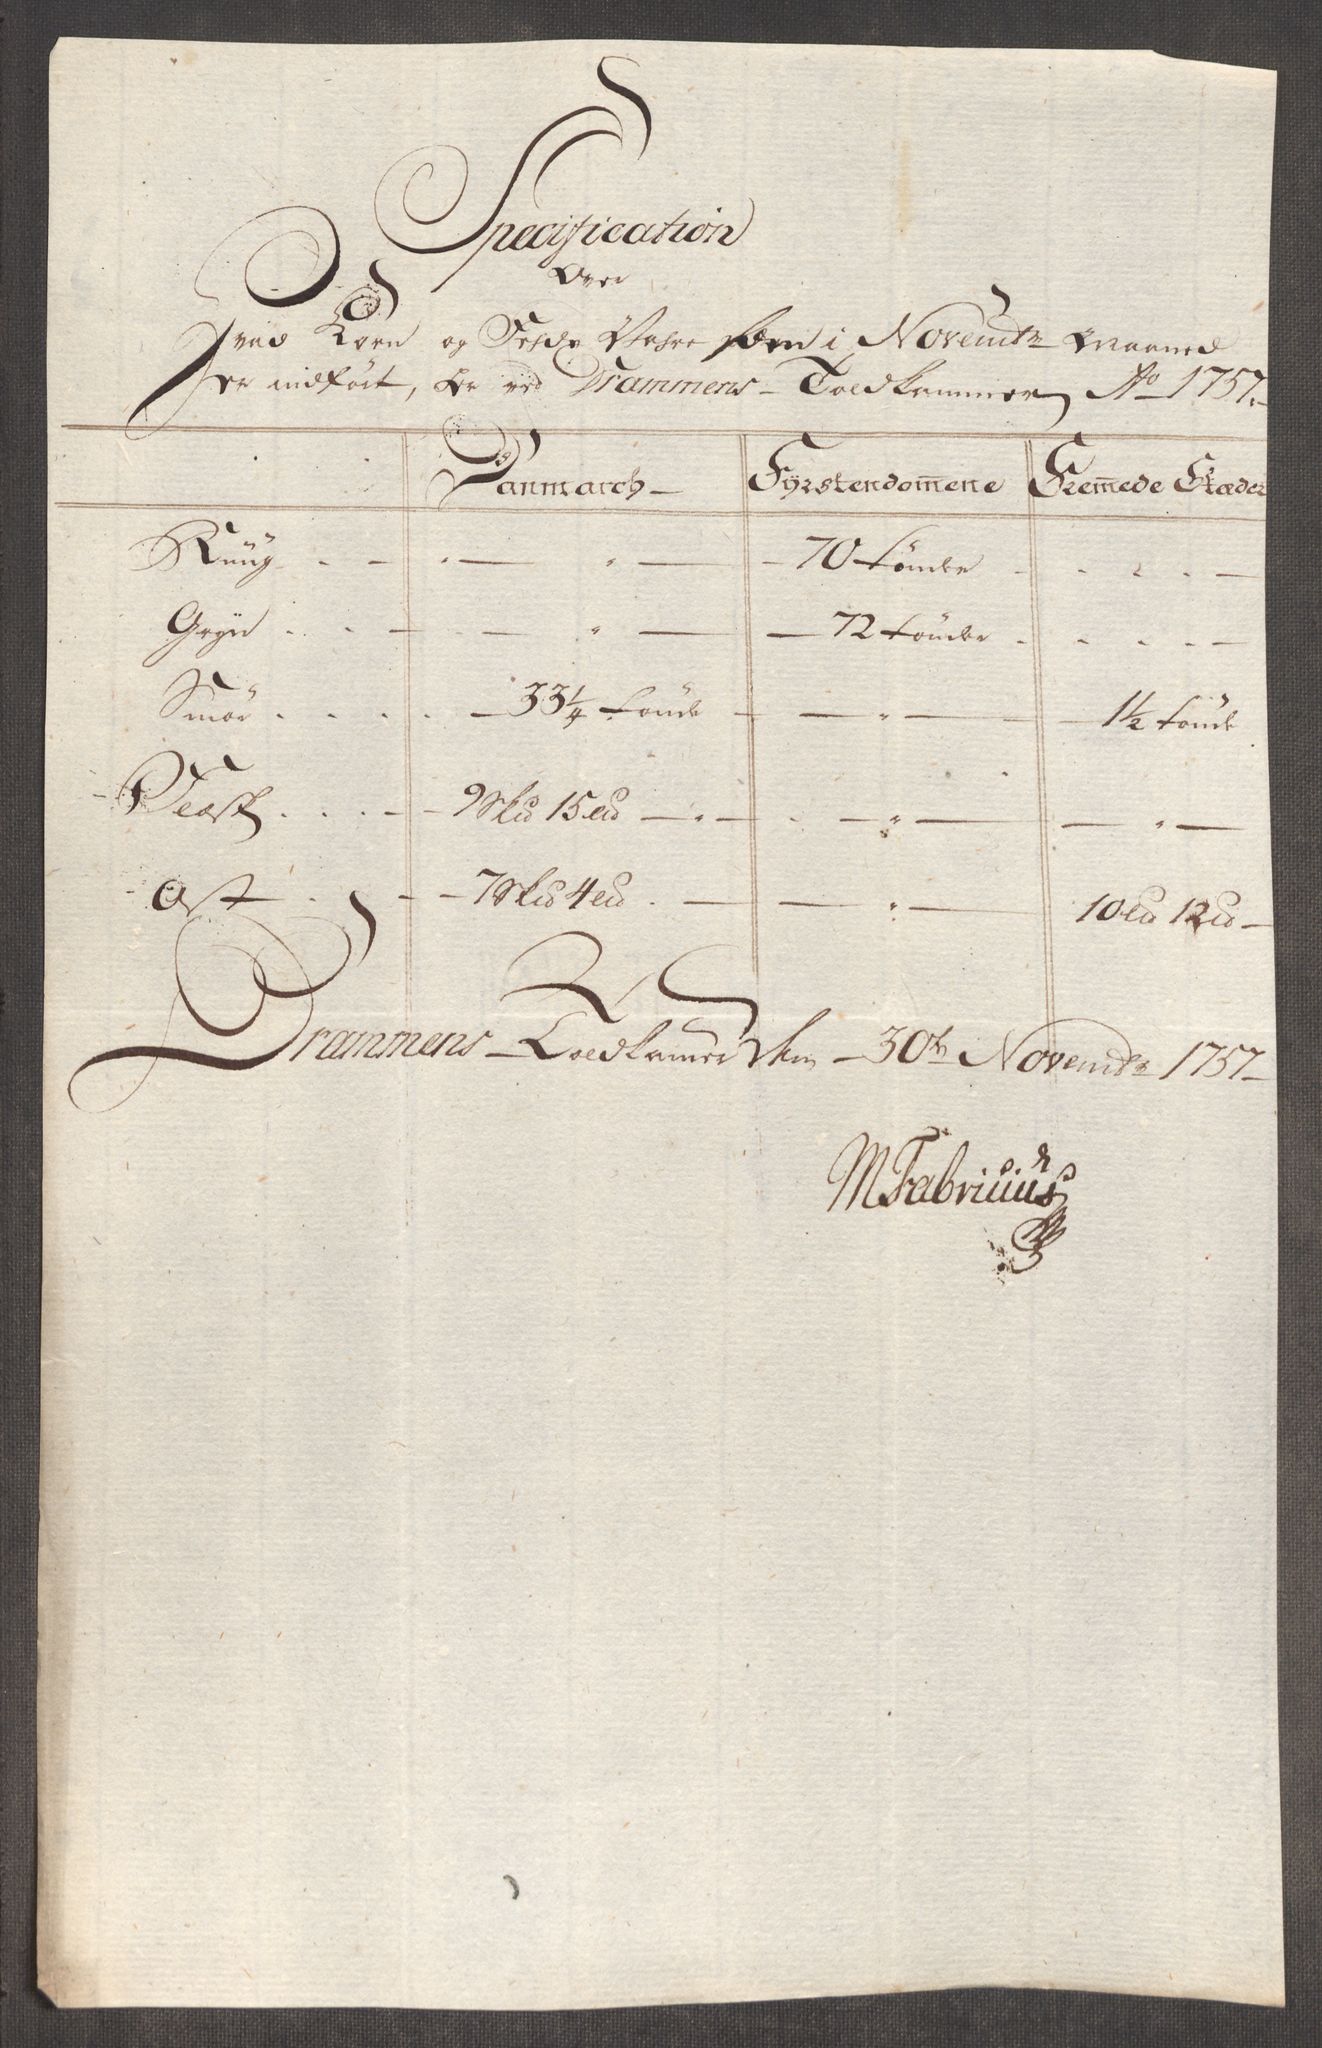 Specification
Over
Hvad Korn og Fæede Vahre som i Novembr Maaned
er indført, her ved Drammens Toldkammer Ao 1757.
Danmarch Fÿrstendomene Fremede Stæder
Ruug 70 tönder
Grÿn 72 tönder
Smör 33 1/4 tönde 1 1/2 tönde
Fleösk 9 Sk℔ 15 L℔
Ost 7 Sk℔ 4 L℔ 10 L℔ 12 ℔
Drammens Toldkamer den 30te Novembr 1757
MFabricius